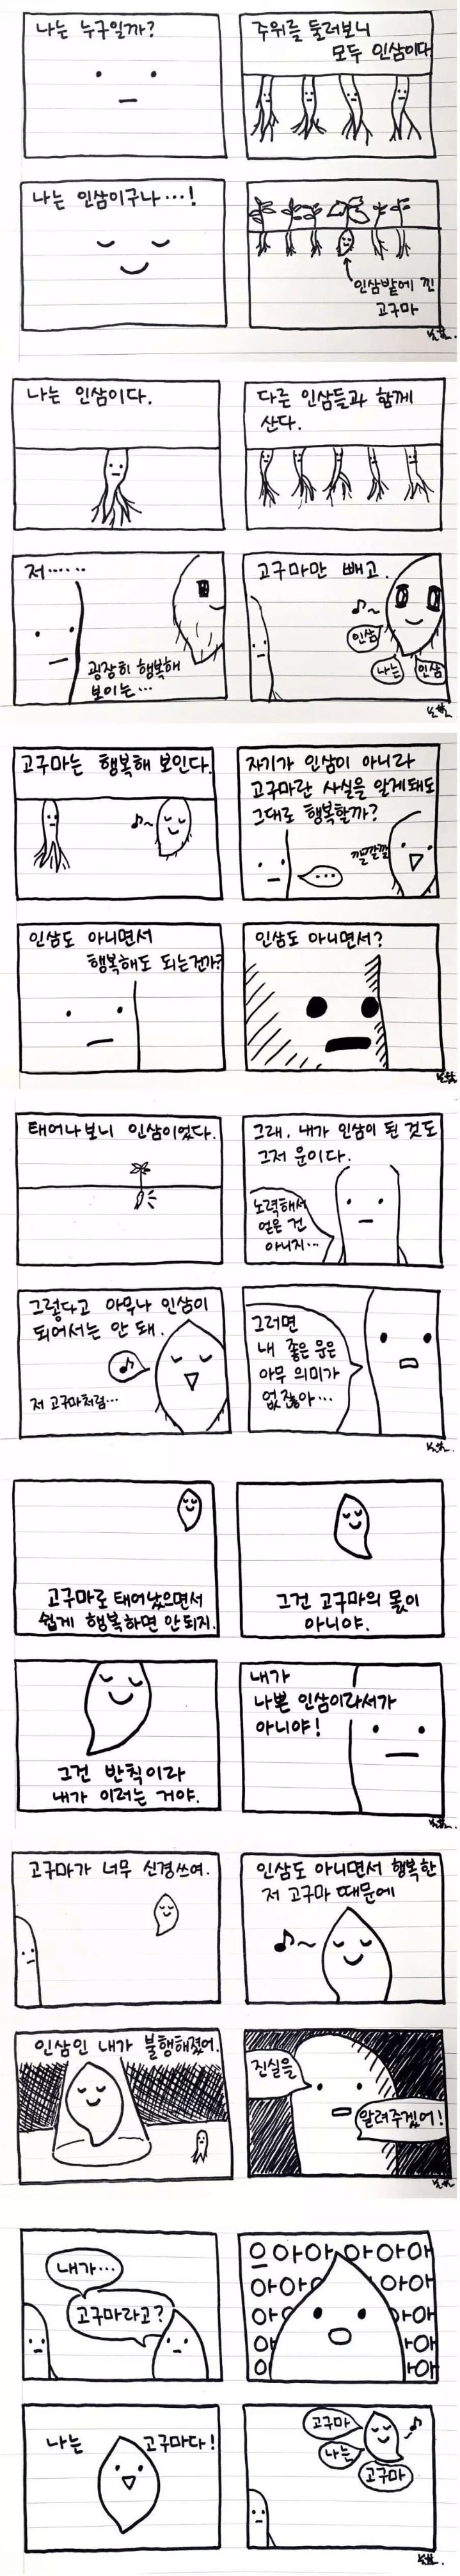 나는 누구일까?
주위를 둘러보니
모두 인삼이다
나는 인삼이구나…!
인삼밭에 낀
고구마
나는 인삼이다.
다른 인삼들과 함께
산다.
저……
굉장히 행복해
보이는…
고구마만 빼고.
인삼
나는
인삼
고구마는 행복해 보인다.
자기가 인삼이 아니라
고구마란 사실을 알게돼도
그대로 행복할까?
…
깔깔깔
인삼도 아니면서
행복해도 되는건가?
인삼도 아니면서?
태어나보니 인삼이었다.
그래, 내가 인삼이 된 것도
그저 운이다.
노력해서
얻은 건
아니지…
그렇다고 아무나 인삼이
되어서는 안 돼.
저 고구마처럼…
그러면
내 좋은 운은
아무 의미가
없잖아…
고구마로 태어났으면서
쉽게 행복하면 안되지.
그건 고구마의 몫이
아니야.
그건 반칙이라
내가 이러는 거야.
내가
나쁜 인삼이라서가
아니야!
고구마가 너무 신경쓰여.
인삼도 아니면서 행복한
저 고구마 때문에
인삼인 내가 불행해졌어.
진실을
알려주겠어!
내가…
고구마라고?
으아아아아아아
아아아아아
아아아아
아아아
아아아
나는 고구마다!
고구마
나는
고구마